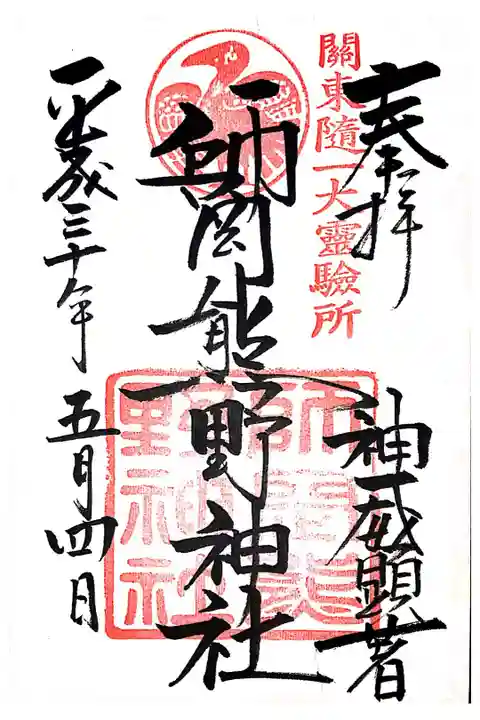 奉拝
神威顕著
關東隨一大靈驗所
師岡熊野神社
師岡熊野神社
平成三十年五月四日